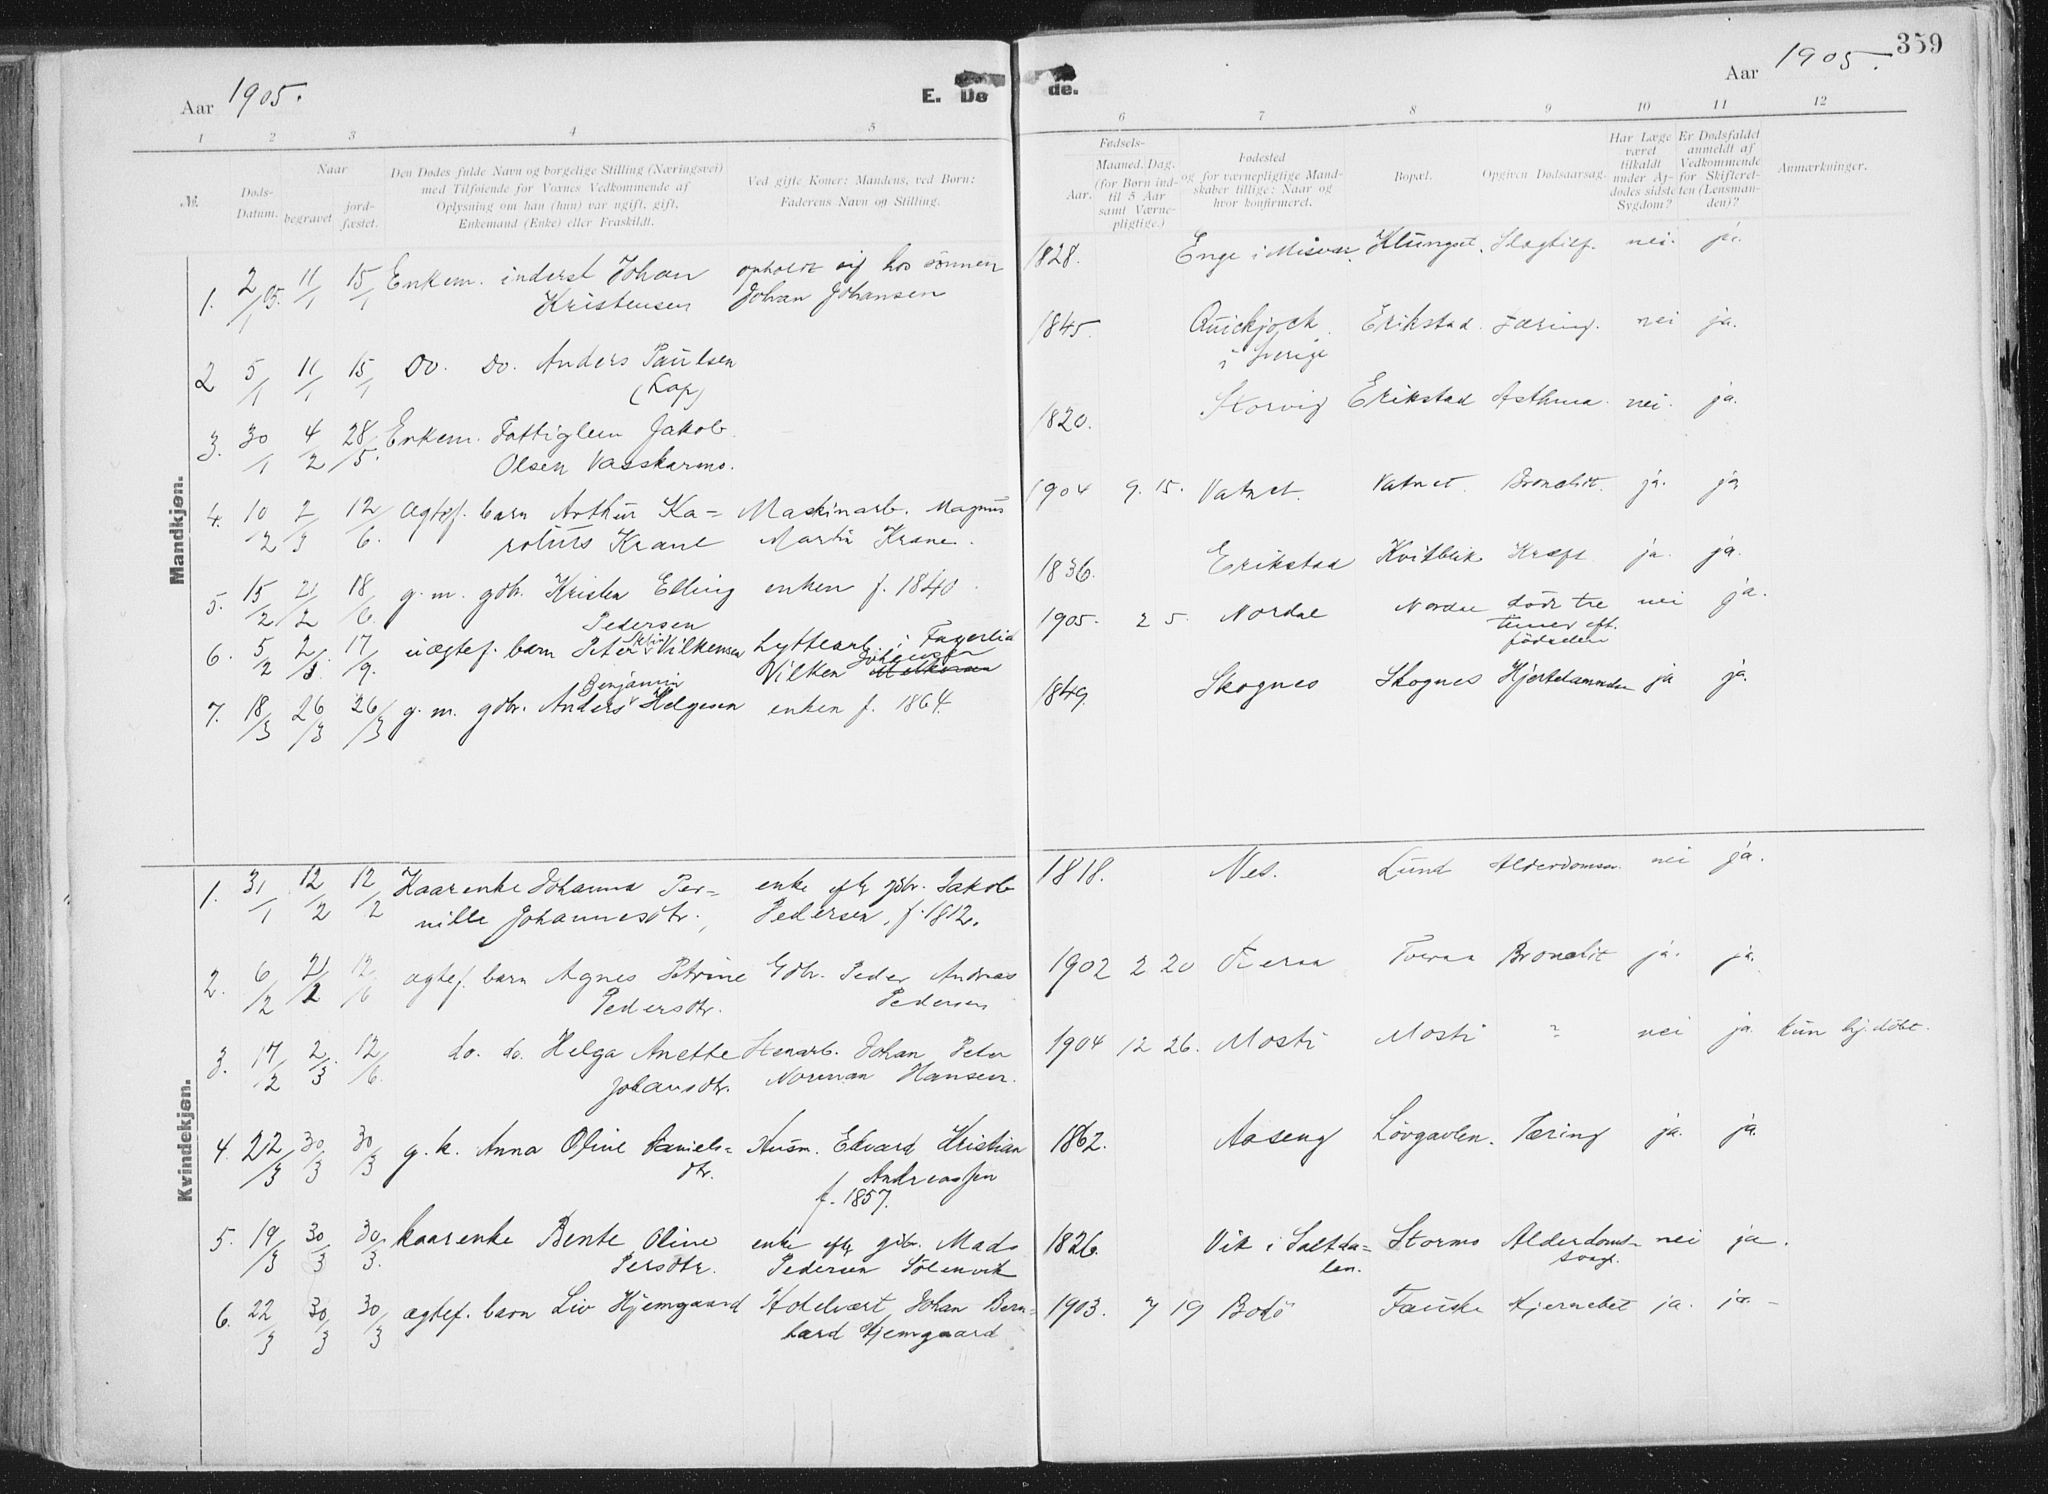 359
Aar 1905.
E. Dø de.
Aar 1905.
1 2 3 4 5 6 7 8 9 10 11 12
№.
Døds-
Datum.
Naar
begravet
jord-
fæstet.
Den Dødes fulde Navn og borgelige Stilling (Næringsvei)
med Tilføiende for Voxnes Vedkommende af
Oplysning om han (hun) var ugift, gift,
Enkemand (Enke) eller Fraskildt.
Ved gifte Koner: Mandens, ved Børn:
Faderens Navn og Stilling.
Fødsels-
Aar.
Maaned. Dag.
(for Børn ind-
til 5 Aar
samt Værne-
pligtige.)
Fødested
og for værnepligtige Mand-
skaber tillige: Naar og
hvor konfirmeret.
Bopæl.
Opgiven Dødsaarsag.
Har Læge
været
tilkaldt
under Af-
dødes sidste
Sygdom?
Er Dødsfaldet
anmeldt af
Vedkommende
for Skifteret-
ten (Lensman-
den)?
Anmærkninger.
Mandkjøn.
1. 2/1 05. 11/1 15/1 Enkem. inderst Johan opholdt sig hos sønnen 1828. Enge i Misvær. Klungset. Slagtilf. nei. ja.
Kristensen Johan Johansen
2 5/1 11/1 15/1 Do. Do. Anders Paulsen 1845. Quickjock Erikstad. Tæring. nei ja.
(Lap) i Sverige
3. 30/1 4/2 28/5. Enkem. Fattiglem Jakob 1820. Storvig Erikstad Asthma. nei. ja.
Olsen Vasskarmo.
4. 10/2 2/3 12/6. ægtef. barn Arthur Ka- Maskinarb. Magnus 1904 9. 15. Vatnet. Vatnet. Bronchit. ja. ja
rolius Krane Martin Krane.
5. 15/2 21/2 18/6. g. m. gdbr. Kristen Elling enken f. 1840. 1836. Erikstad Kvitblik Kræft. ja. ja.
Pedersen
6. 5/2 2/3. 17/9. uægtef. barn Peter Vilkensen i Fagerlid 1905. 2 5. Nordal Nordal døde tre nei ja.
Vilken Johansen timer eft.
fødselen
7. 18/3 26/3 26/3 g. m. gdbr. Anders Benjamin Helgesen enken f. 1864. 1849. Skognes Skognes Hjertelammelse ja ja.
Kvindekjøn.
1. 31/1 12/2 12/2 Kaarenke Johanna Per- enke eftr gdbr. Jakob 1818. Nes. Lund Alderdomssv. nei ja.
nille Johannesdtr. Pedersen, f. 1812.
2. 6/2 21/2 12/6 ægtef. barn Agnes Petrine Gdbr. Peder Andreas 1902 2 20 Tveraa Tveraa Bronchit ja. ja.
Pedersdtr. Pedersen
3. 17/2 2/3. 12/6. do. do. Helga Anette Stenarb. Johan Peter 1904 12 26. Mosti Mosti ? nei ja. kun hj. døbt.
Johansdtr. Norman Hansen.
4. 22/3 30/3 30/3 g. k. Anna Oline Daniels- Husm. Edvard Kristian 1862. Aaseng Løvgavlen. Tæring ja. ja.
dtr. Andreassen
f. 1857.
5. 19/3 30/3 30/3. kaarenke Bente Oline enke eftr gdbr. Mads 1826. Vik i Saltda- Stormo Alderdoms- nei ja.
Persdtr. Pedersen Sølenvik len. svagh.
6. 22/3 30/3 30/3 ægtef. barn Liv Hjemgaard Hotelvært Johan Bern- 1903. 7 19 Bodø Fauske Hjernebet ja. ja.
hard Hjemgaard